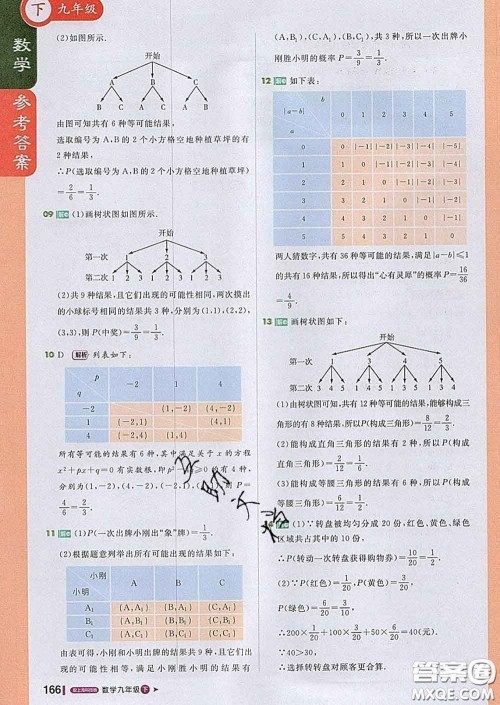 下 九年级
数学
参考答案
(2)如图所示.
开始
A B C
B C A C A B
由图可知共有 6 种等可能结果,
选取编号为 A,B 的 2 个小方格空地种植草坪的有
2 种结果,
∴P(选取编号为 A,B 的 2 个小方格空地种植草坪)
=2/6=1/3.
09 (1)画树状图如图所示.
开始
第一次 1 2 3
第二次 1 2 3 1 2 3 1 2 3
(2)共 9 种结果,且它们出现的可能性相同,两次摸出
的小球标号相同的结果共 3 种,分别为(1,1),(2,2),
(3,3),则 P(中奖)=3/9=1/3.
10 D 解析 列表如下:
p q -2 1 4
-2 (1,-2) (4,-2)
1 (-2,1) (4,1)
4 (-2,4) (1,4)
所有等可能的结果有 6 种,其中满足关于 x 的方程
x²+px+q=0 有实数根,即 p²-4q≥0 的有 4 种,
分别为(1,-2),(4,-2),(-2,1),(4,1),则 P=
4/6=2/3.
11 (1)P(一次出牌小刚出“象”牌)=1/3.
(2)根据题意列举出所有可能的结果如下:
小刚 小明 A B C
A₁ (A,A₁) (B,A₁) (C,A₁)
B₁ (A,B₁) (B,B₁) (C,B₁)
C₁ (A,C₁) (B,C₁) (C,C₁)
由表可得,小刚和小明出牌的结果有 9 种,且它们出
现的可能性相等,满足小刚胜小明的结果有
166 数学九年级 下
(A,B₁),(B,C₁),(C,A₁),共 3 种,所以一次出牌小
刚胜小明的概率 P=3/9=1/3.
12 如下表:
|a-b| 0 1 2 3 4 5
0 0 |-1| |-2| |-3| |-4| |-5|
1 1 0 |-1| |-2| |-3| |-4|
2 2 1 0 |-1| |-2| |-3|
3 3 2 1 0 |-1| |-2|
4 4 3 2 1 0 |-1|
5 5 4 3 2 1 0
两人猜数字,共有 36 种等可能的结果,满足|a-b|≤1
的共有 16 种结果,所以得出“心有灵犀”的概率 P=16/36
=4/9.
13 画树状图如下:
开始
第一次 1 3 4 5
第二次 3 4 5 1 4 5 1 3 5 1 3 4
(1)由树状图可知,共有 12 种等可能的结果,能够构成三
角形的有 8 种结果,所以 P(构成三角形)=8/12=2/3.
(2)能构成直角三角形的结果有 2 种,所以 P(构成
直角三角形)=2/12=1/6.
(3)能构成等腰三角形的结果有 6 种,所以 P(构成
等腰三角形)=6/12=1/2.
(1)∵转盘被均匀分成 20 份,红色、黄色、绿色
区域共占其中的 10 份.
∴P(转动一次转盘获得购物券)=10/20=1/2.
(2)∵P(红色)=1/20,P(黄色)=3/20,
P(绿色)=6/20=3/10,
∴200×1/20+100×3/20+50×6/20=40(元).
∵40>30,
∴选择转转盘对顾客更合算.
答案圈
MXQE.COM